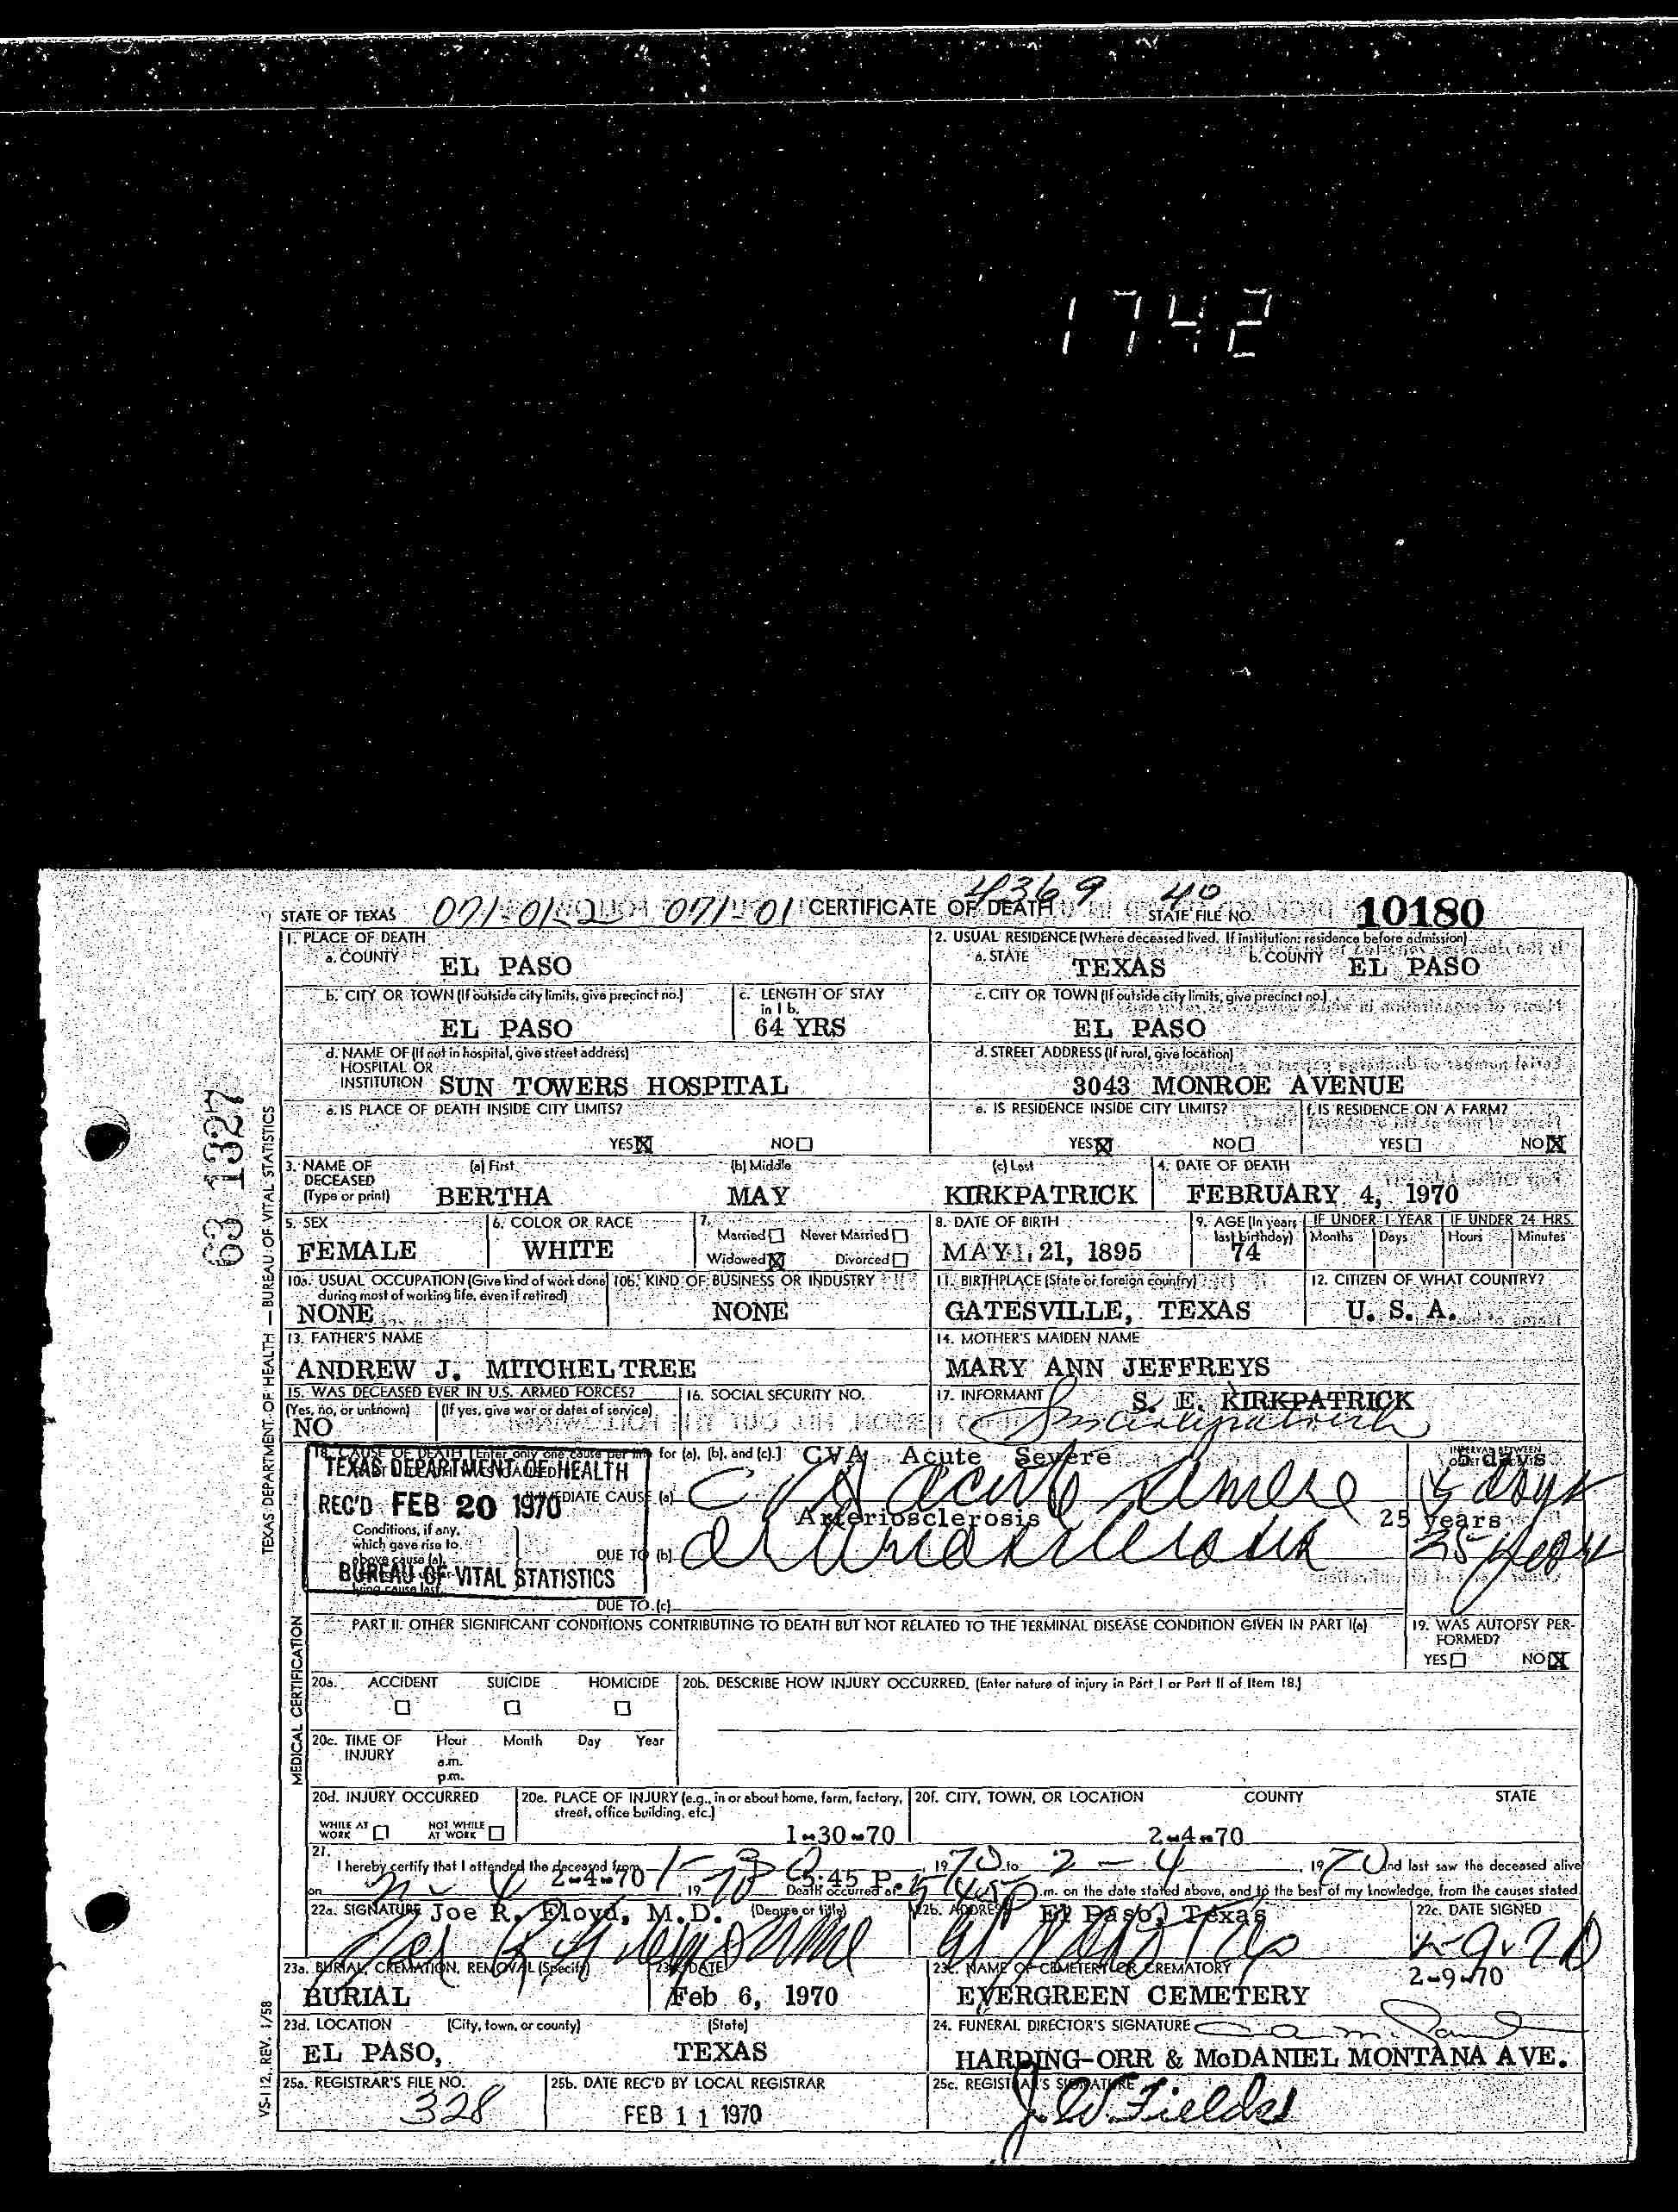 1742
4369 40
STATE OF TEXAS 071-01-2 071-01 CERTIFICATE OF DEATH STATE FILE NO. 10180
1. PLACE OF DEATH
a. COUNTY EL PASO
2. USUAL RESIDENCE (Where deceased lived. If institution: residence before admission)
a. STATE TEXAS b. COUNTY EL PASO
b. CITY OR TOWN (If outside city limits, give precinct no.) EL PASO
c. LENGTH OF STAY in 1 b. 64 YRS
c. CITY OR TOWN (If outside city limits, give precinct no.) EL PASO
d. NAME OF (If not in hospital, give street address) HOSPITAL OR INSTITUTION SUN TOWERS HOSPITAL
d. STREET ADDRESS (If rural, give location) 3043 MONROE AVENUE
e. IS PLACE OF DEATH INSIDE CITY LIMITS? YES X NO
e. IS RESIDENCE INSIDE CITY LIMITS? YES X NO
f. IS RESIDENCE ON A FARM? YES NO X
3. NAME OF DECEASED (Type or print)
(a) First BERTHA (b) Middle MAY (c) Last KIRKPATRICK
4. DATE OF DEATH FEBRUARY 4, 1970
5. SEX FEMALE
6. COLOR OR RACE WHITE
7. Married Never Married Widowed X Divorced
8. DATE OF BIRTH MAY 21, 1895
9. AGE (In years last birthday) 74
IF UNDER 1 YEAR Months Days
IF UNDER 24 HRS. Hours Minutes
10a. USUAL OCCUPATION (Give kind of work done during most of working life, even if retired) NONE
10b. KIND OF BUSINESS OR INDUSTRY NONE
11. BIRTHPLACE (State or foreign country) GATESVILLE, TEXAS
12. CITIZEN OF WHAT COUNTRY? U. S. A.
13. FATHER'S NAME ANDREW J. MITCHELTREE
14. MOTHER'S MAIDEN NAME MARY ANN JEFFREYS
15. WAS DECEASED EVER IN U.S. ARMED FORCES?
(Yes, no, or unknown) (If yes, give war or dates of service) NO
16. SOCIAL SECURITY NO.
17. INFORMANT S. E. KIRKPATRICK
18. CAUSE OF DEATH [Enter only one cause per line for (a), (b), and (c).]
TEXAS DEPARTMENT OF HEALTH
REC'D FEB 20 1970
BUREAU OF VITAL STATISTICS
IMMEDIATE CAUSE (a) CVA Acute Severe 5 days
CVA acute severe 5 days
Conditions, if any, which gave rise to above cause (a),
lying cause last.
Arteriosclerosis 25 years
DUE TO (b) arteriosclerosis 25 years
DUE TO (c)
INTERVAL BETWEEN
PART II. OTHER SIGNIFICANT CONDITIONS CONTRIBUTING TO DEATH BUT NOT RELATED TO THE TERMINAL DISEASE CONDITION GIVEN IN PART I(a)
19. WAS AUTOPSY PERFORMED? YES NO X
20a. ACCIDENT SUICIDE HOMICIDE
20b. DESCRIBE HOW INJURY OCCURRED. (Enter nature of injury in Part I or Part II of Item 18.)
20c. TIME OF INJURY Hour Month Day Year
a.m.
p.m.
20d. INJURY OCCURRED
WHILE AT WORK NOT WHILE AT WORK
20e. PLACE OF INJURY (e.g., in or about home, farm, factory, street, office building, etc.)
20f. CITY, TOWN, OR LOCATION COUNTY STATE
1-30-70 2-4-70
21. I hereby certify that I attended the deceased from 1-30, 1970 to 2-4, 1970 and last saw the deceased alive
2-4-70 5:45 P.
on 2-4 1970 Death occurred at 5:45 p.m. on the date stated above, and to the best of my knowledge, from the causes stated.
22a. SIGNATURE Joe R. Floyd, M.D. (Degree or title)
22b. ADDRESS El Paso, Texas
22c. DATE SIGNED 2-9-70
2-9-70
23a. BURIAL, CREMATION, REMOVAL (Specify) BURIAL
23b. DATE Feb 6, 1970
23c. NAME OF CEMETERY OR CREMATORY EVERGREEN CEMETERY
23d. LOCATION (City, town, or county) (State)
EL PASO, TEXAS
24. FUNERAL DIRECTOR'S SIGNATURE
HARDING-ORR & McDANIEL MONTANA AVE.
25a. REGISTRAR'S FILE NO. 328
25b. DATE REC'D BY LOCAL REGISTRAR FEB 11 1970
25c. REGISTRAR'S SIGNATURE J. W. Fields
63 1327
TEXAS DEPARTMENT OF HEALTH — BUREAU OF VITAL STATISTICS
MEDICAL CERTIFICATION
VS-112, REV. 1/58